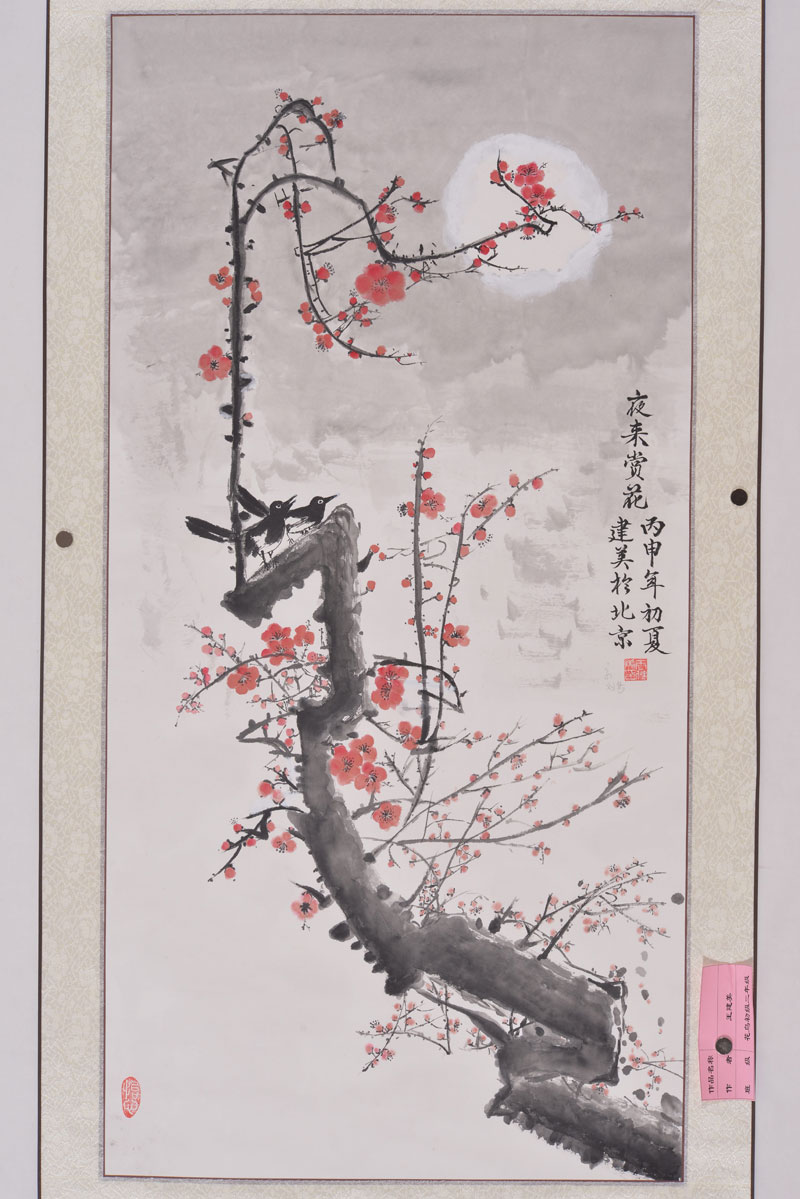 夜来赏花
丙申年初夏
建美於北京
作品名称
作 者 王建美
班 级 花鸟初级二年级